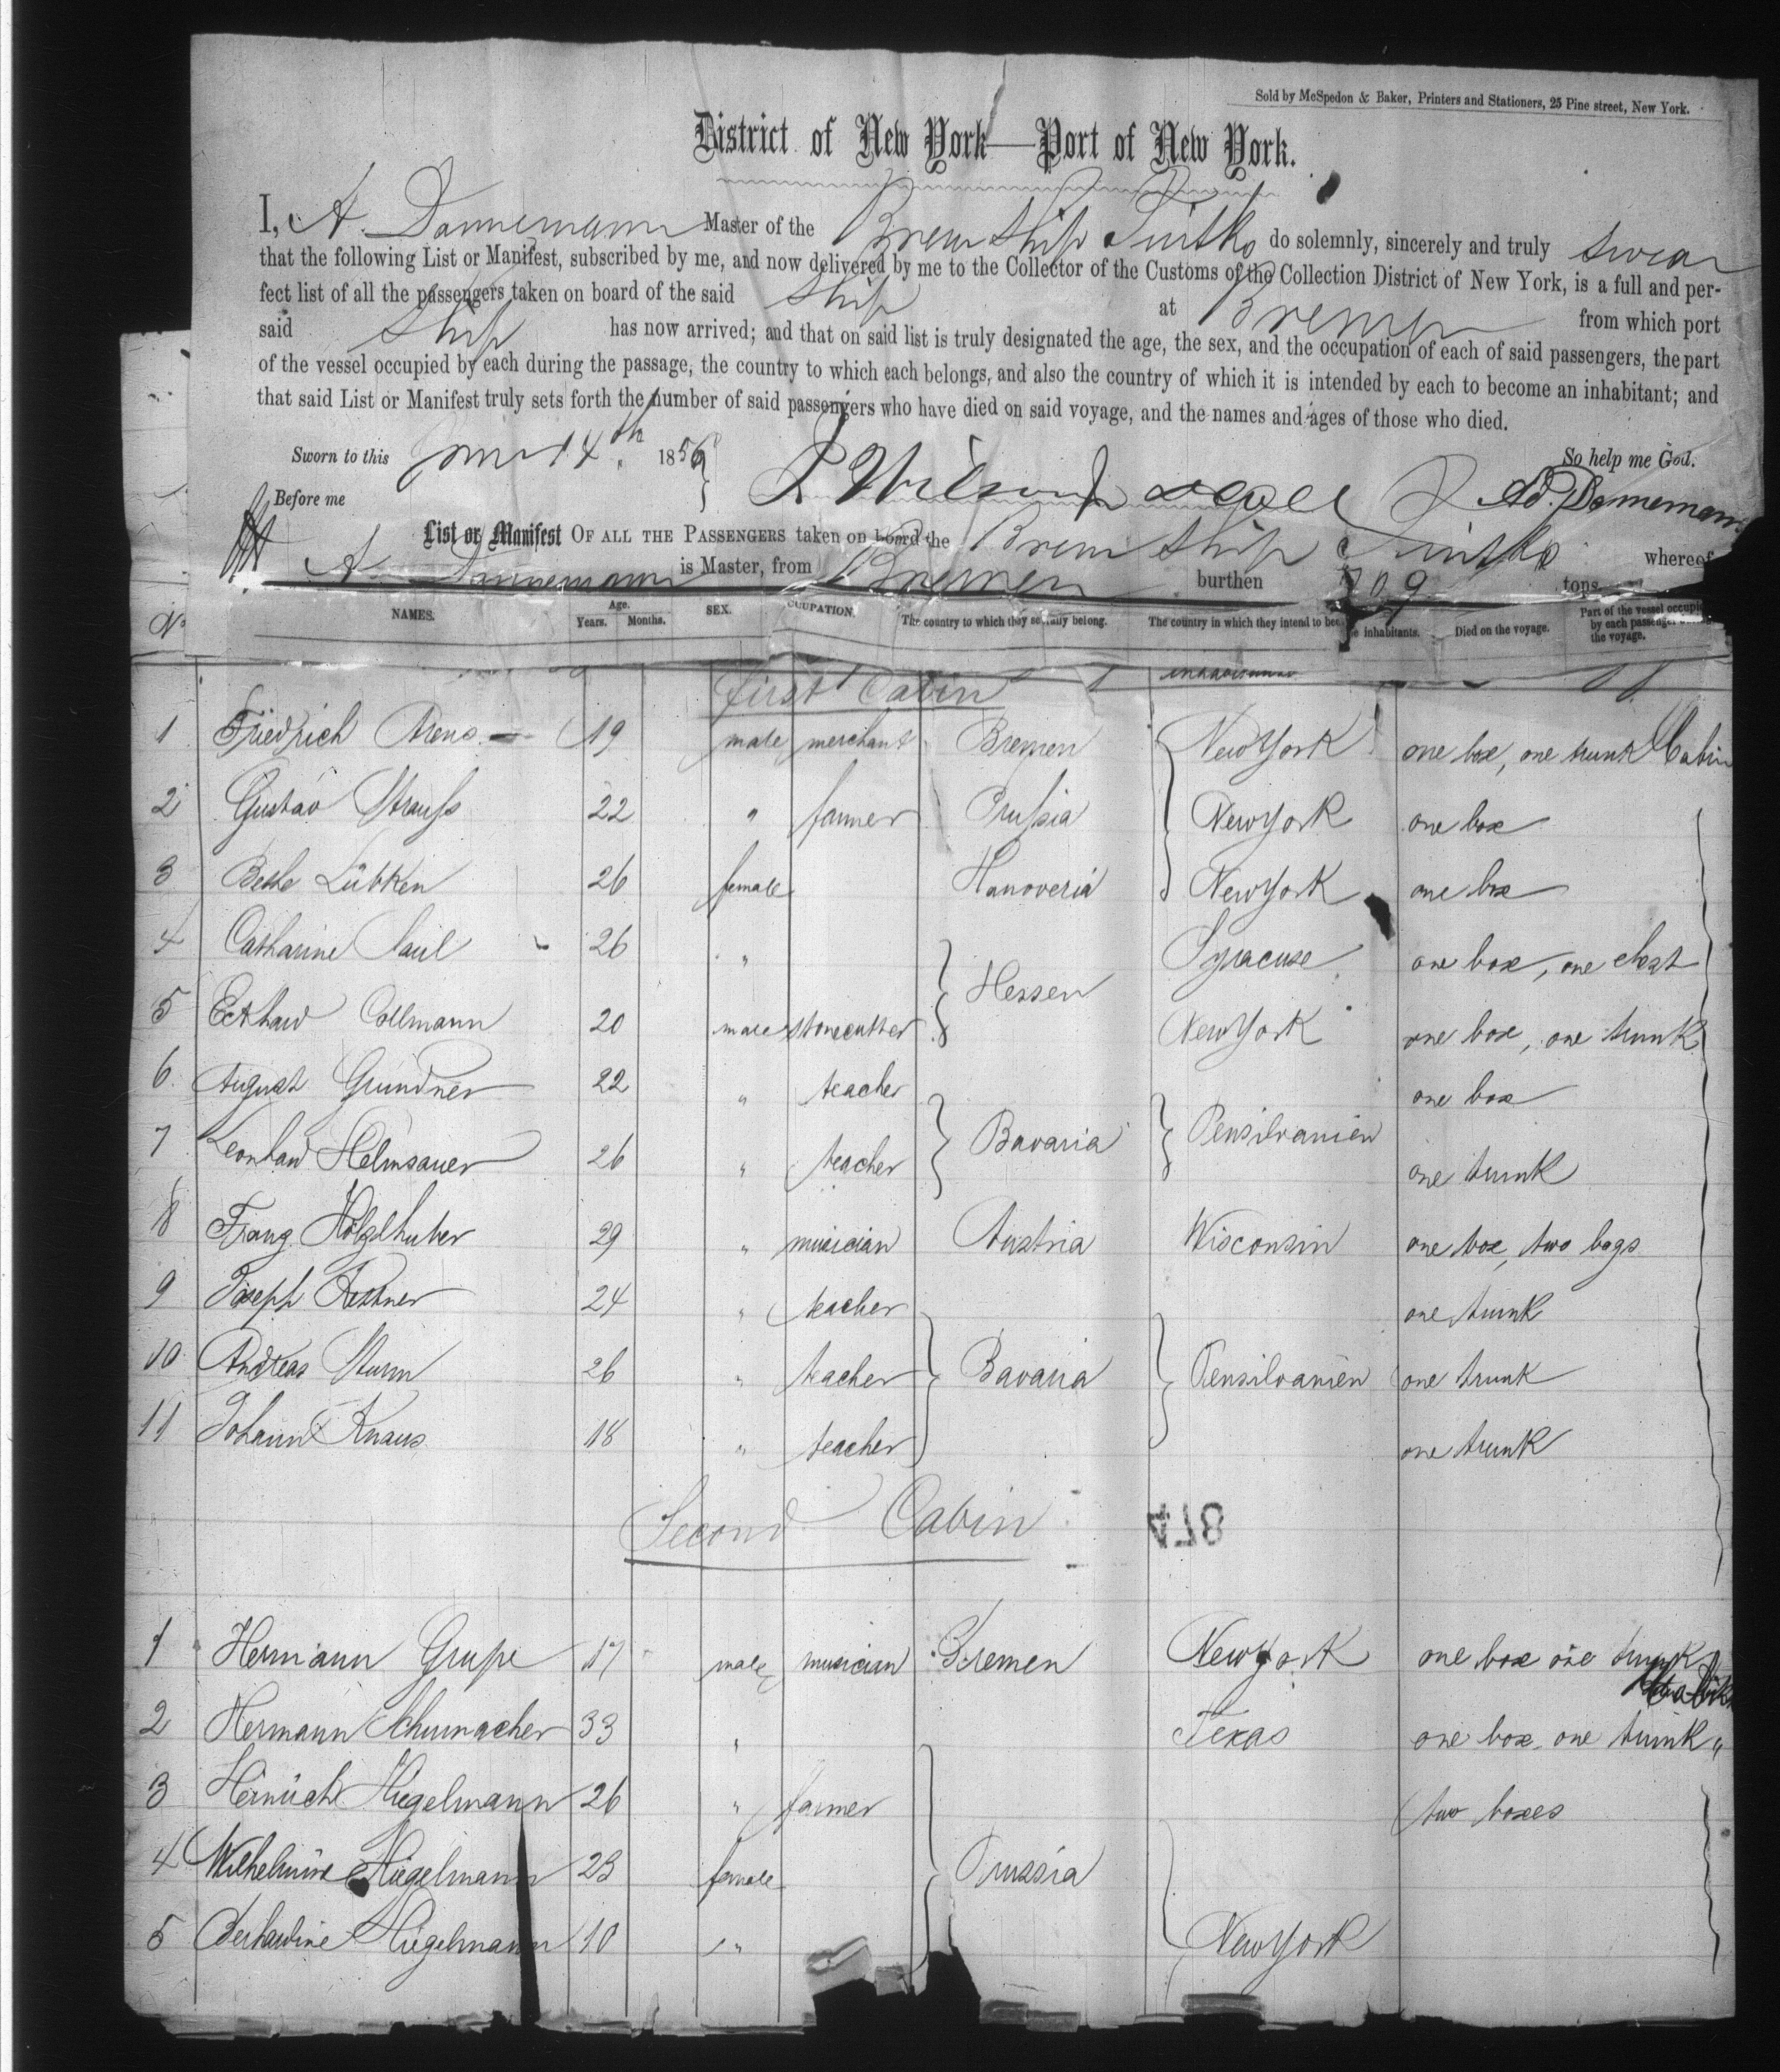 Sold by McSpedon & Baker, Printers and Stationers, 25 Pine street, New York.
District of New York—Port of New York.
I, A. Dannemann Master of the Brem Ship do solemnly, sincerely and truly swear
that the following List or Manifest, subscribed by me, and now delivered by me to the Collector of the Customs of the Collection District of New York, is a full and per-
fect list of all the passengers taken on board of the said Ship at Bremen from which port
said Ship has now arrived; and that on said list is truly designated the age, the sex, and the occupation of each of said passengers, the part
of the vessel occupied by each during the passage, the country to which each belongs, and also the country of which it is intended by each to become an inhabitant; and
that said List or Manifest truly sets forth the number of said passengers who have died on said voyage, and the names and ages of those who died.
Sworn to this 14th 1856 So help me God.
Before me Ad. Dannemann
List or Manifest OF ALL THE PASSENGERS taken on board the Brem Ship whereof
A. Dannemann is Master, from Bremen burthen 709 tons
No NAMES. Age. Years. Months. SEX. OCCUPATION. The country to which they severally belong. The country in which they intend to become inhabitants. Died on the voyage. Part of the vessel occupied by each passenger the voyage.
First Cabin
1 Friedrich Arens 19 male merchant Bremen New York one box, one trunk Cabin
2 Gustav Strauss 22 " farmer Prussia New York one box
3 Lübken 26 female Hanoveria New York one box
4 Catharine Saul 26 " Hessen Syracuse one box, one chest
5 Eckhard Collmann 20 male stonecutter New York one box, one trunk
6 August Grundner 22 " teacher one box
7 Leonhard Helmsauer 26 " teacher Bavaria Pensilvanien one trunk
8 Franz Hölzlhuber 29 " musician Austria Wisconsin one box, two bags
9 Joseph 24 " teacher one trunk
10 Andreas Sturm 26 " teacher Bavaria Pensilvanien one trunk
11 Johann Knaus 18 " teacher one trunk
Second Cabin
478
1 Hermann Grupe 17 male musician Bremen New York one box one trunk
2 Hermann Schumacher 33 " Texas one box, one trunk "
3 Heinrich Hiegelmann 26 " farmer two boxes
4 Wilhelmine Hiegelmann 23 female Prussia
5 Hiegelmann 10 " New York